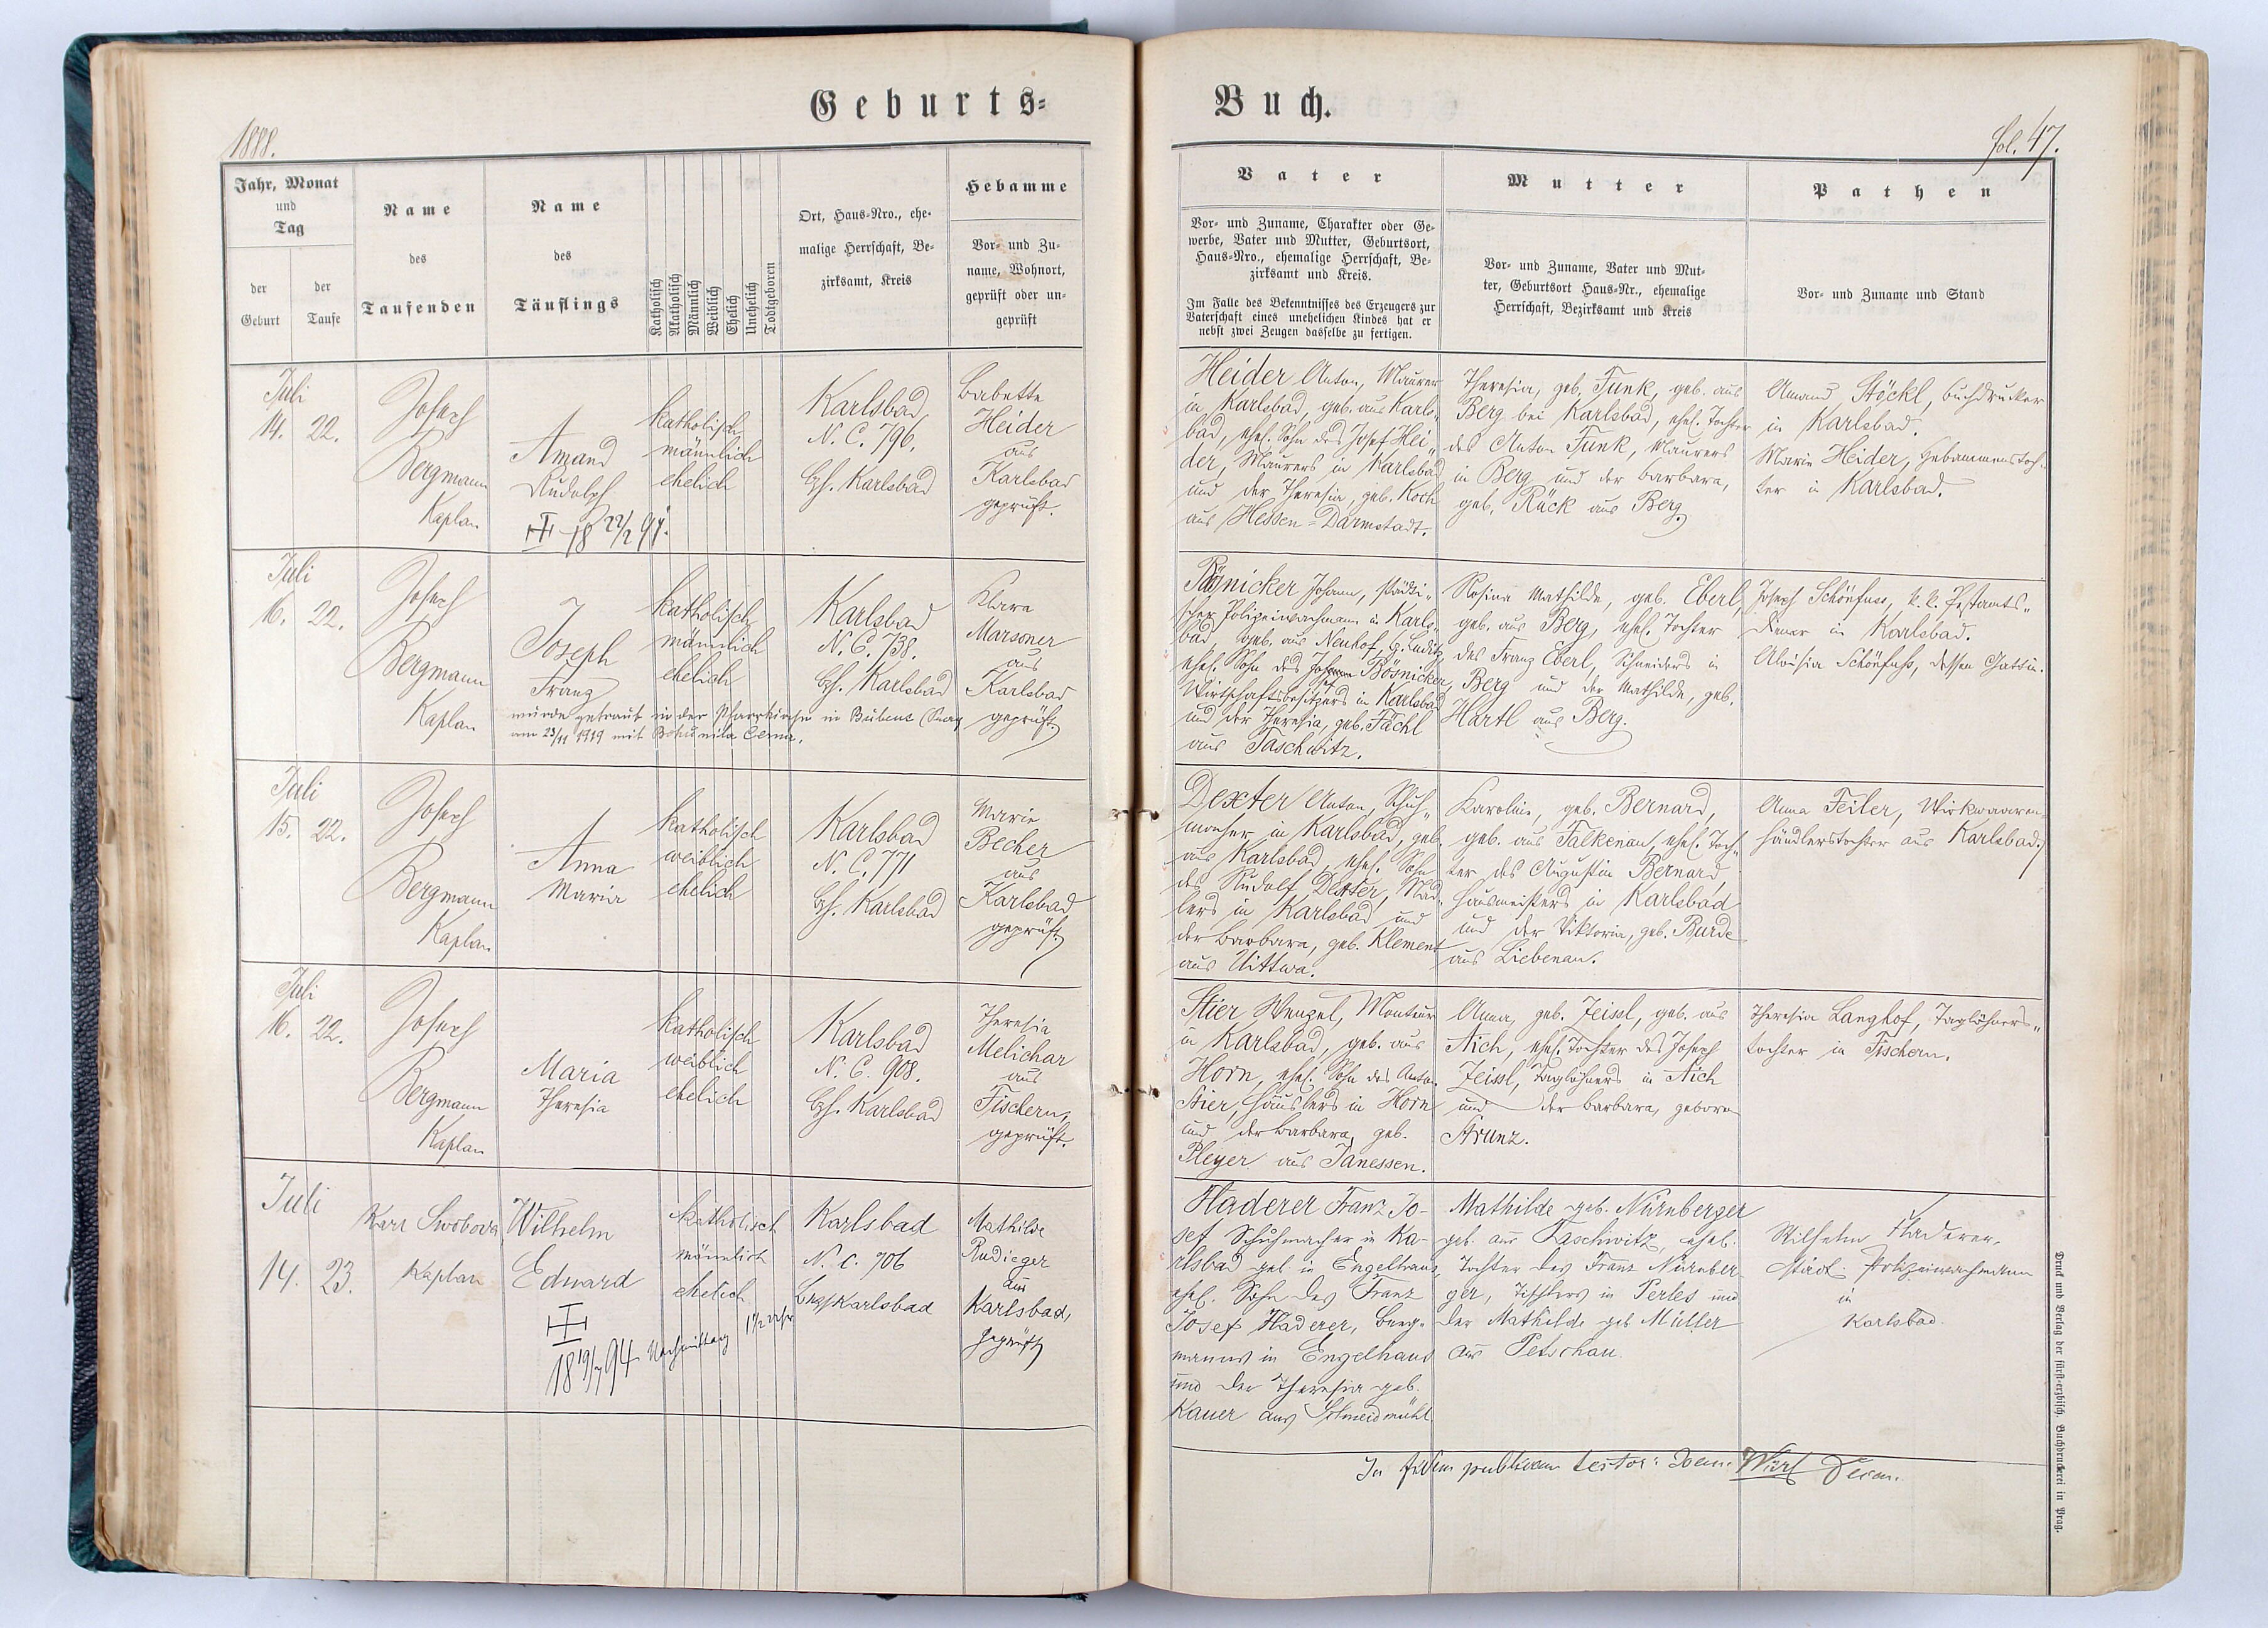 Geburts=
Buch.
1888.
fol. 47.
Jahr, Monat
und
Tag
der
Geburt
der
Taufe
Name
des
Taufenden
Name
des
Täuflings
Katholisch
Akatholisch
Männlich
Weiblich
Ehelich
Unehelich
Todtgeboren
Ort, Haus=Nro., ehe=
malige Herrschaft, Be=
zirksamt, Kreis
Hebamme
Vor= und Zu=
name, Wohnort,
geprüft oder un=
geprüft
Vater
Vor= und Zuname, Charakter oder Ge=
werbe, Vater und Mutter, Geburtsort,
Haus=Nro., ehemalige Herrschaft, Be=
zirksamt und Kreis.
Im Falle des Bekenntnisses des Erzeugers zur
Vaterschaft eines unehelichen Kindes hat er
nebst zwei Zeugen dasselbe zu fertigen.
Mutter
Vor= und Zuname, Vater und Mut=
ter, Geburtsort Haus=Nr., ehemalige
Herrschaft, Bezirksamt und Kreis
Pathen
Vor= und Zuname und Stand
Juli
14. 22.
Joseph
Bergmann
Kaplan
Amand
Rudolf
18 22/2 91.
katholisch
männlich
ehelich
Karlsbad,
N. C. 796.
Bzh. Karlsbad
Babette
Heider
aus
Karlsbad
geprüft.
Heider Anton, Maurer
in Karlsbad, geb. aus Karls=
bad, ehel. Sohn des Josef Hei=
der, Maurers in Karlsbad
und der Theresia, geb. Koch
aus Hessen=Darmstadt.
Theresia, geb. Funk, geb. aus
Berg bei Karlsbad, ehel. Tochter
des Anton Funk, Maurers
in Berg und der Barbara,
geb. Rück aus Berg.
Amand Stöckl, Buchdrucker
in Karlsbad.
Marie Heider, Hebammenstoch=
ter in Karlsbad.
Juli
16. 22.
Joseph
Bergmann
Kaplan
Joseph
Franz
wurde getraut in der Pfarrkirche in Bubenc (Prag
am 23/11 1919 mit Bohumila Cerna.
katholisch
männlich
ehelich
Karlsbad
N. C. 738.
Bzh. Karlsbad
Klara
Marsoner
aus
Karlsbad
geprüft.
Johann, städti=
scher Polizeiwachmann in Karls=
bad, geb. aus Neuhof, Bz. Luditz,
ehel. Sohn des Bösnicker,
Wirtschaftsbesitzers in Karlsbad
und der Theresia, geb. Fächl
aus Taschwitz.
Rosina Mathilde, geb. Eberl,
geb. aus Berg, ehel. Tochter
des Franz Eberl, Schneiders in
Berg und der Mathilde, geb.
Hartl aus Berg.
Joseph Schönfuss, k. k. Postamts=
diener in Karlsbad.
Aloisia Schönfuss, dessen Gattin.
Juli
15. 22.
Joseph
Bergmann
Kaplan
Anna
Maria
katholisch
weiblich
ehelich
Karlsbad
N. C. 771
Bzh. Karlsbad
Marie
Becher
aus
Karlsbad
geprüft.
Dexter Anton, Schuh=
macher in Karlsbad, geb.
aus Karlsbad, ehel. Sohn
des Rudolf Dexter, Nad=
lers in Karlsbad und
der Barbara, geb. Klement
aus Uittwa.
Karolin, geb. Bernard,
geb. aus Falkenau, ehel. Toch=
ter des Augustin Bernard,
Hausmeisters in Karlsbad
und der Viktoria, geb. Burde
aus Liebenau.
Anna Feiler, Wirkwaaren=
händlerstochter aus Karlsbad.
Juli
16. 22.
Joseph
Bergmann
Kaplan
Maria
Theresia
katholisch
weiblich
ehelich
Karlsbad
N. C. 908.
Bzh. Karlsbad
Theresia
Melichar
aus
Fischern,
geprüft.
Stier Wenzel, Monteur
in Karlsbad, geb. aus
Horn, ehel. Sohn des Anton
Stier, Häuslers in Horn
und der Barbara, geb.
Pleyer aus Janessen.
Anna, geb. Zeissl, geb. aus
Aich, ehel. Tochter des Joseph
Zeissl, Taglöhners in Aich
und der Barbara, geboren
Arunz.
Theresia Langhof, Taglöhners=
tochter in Fischern.
Juli
14. 23.
Karl Swoboda
Kaplan
Wilhelm
Eduard
18 19/7 94 Nachmittag 1 1/2 Uhr
katholisch
männlich
ehelich
Karlsbad
N. c. 706
Bzh Karlsbad
Mathilde
Rudieger
aus
Karlsbad,
geprüft
Haderer Franz Jo=
sef Schuhmacher in Ka=
rlsbad geb. in Engelhaus,
ehel. Sohn des Franz
Josef Haderer, Berg=
manns in Engelhaus
und der Theresia geb.
Kauer aus Schneidmühl.
Mathilde geb. Nürnberger
geb. aus Taschwitz, ehel.
Tochter des Franz Nürnber=
ger, Tischlers in Perles und
der Mathilde geb Müller
aus Petschau.
Wilhelm Haderer,
städt. Polizeiwachmann
in
Karlsbad.
In fidem publicam testor: Wirl Decan.
Druck und Verlag der fürst=erzbisch. Buchdruckerei in Prag.